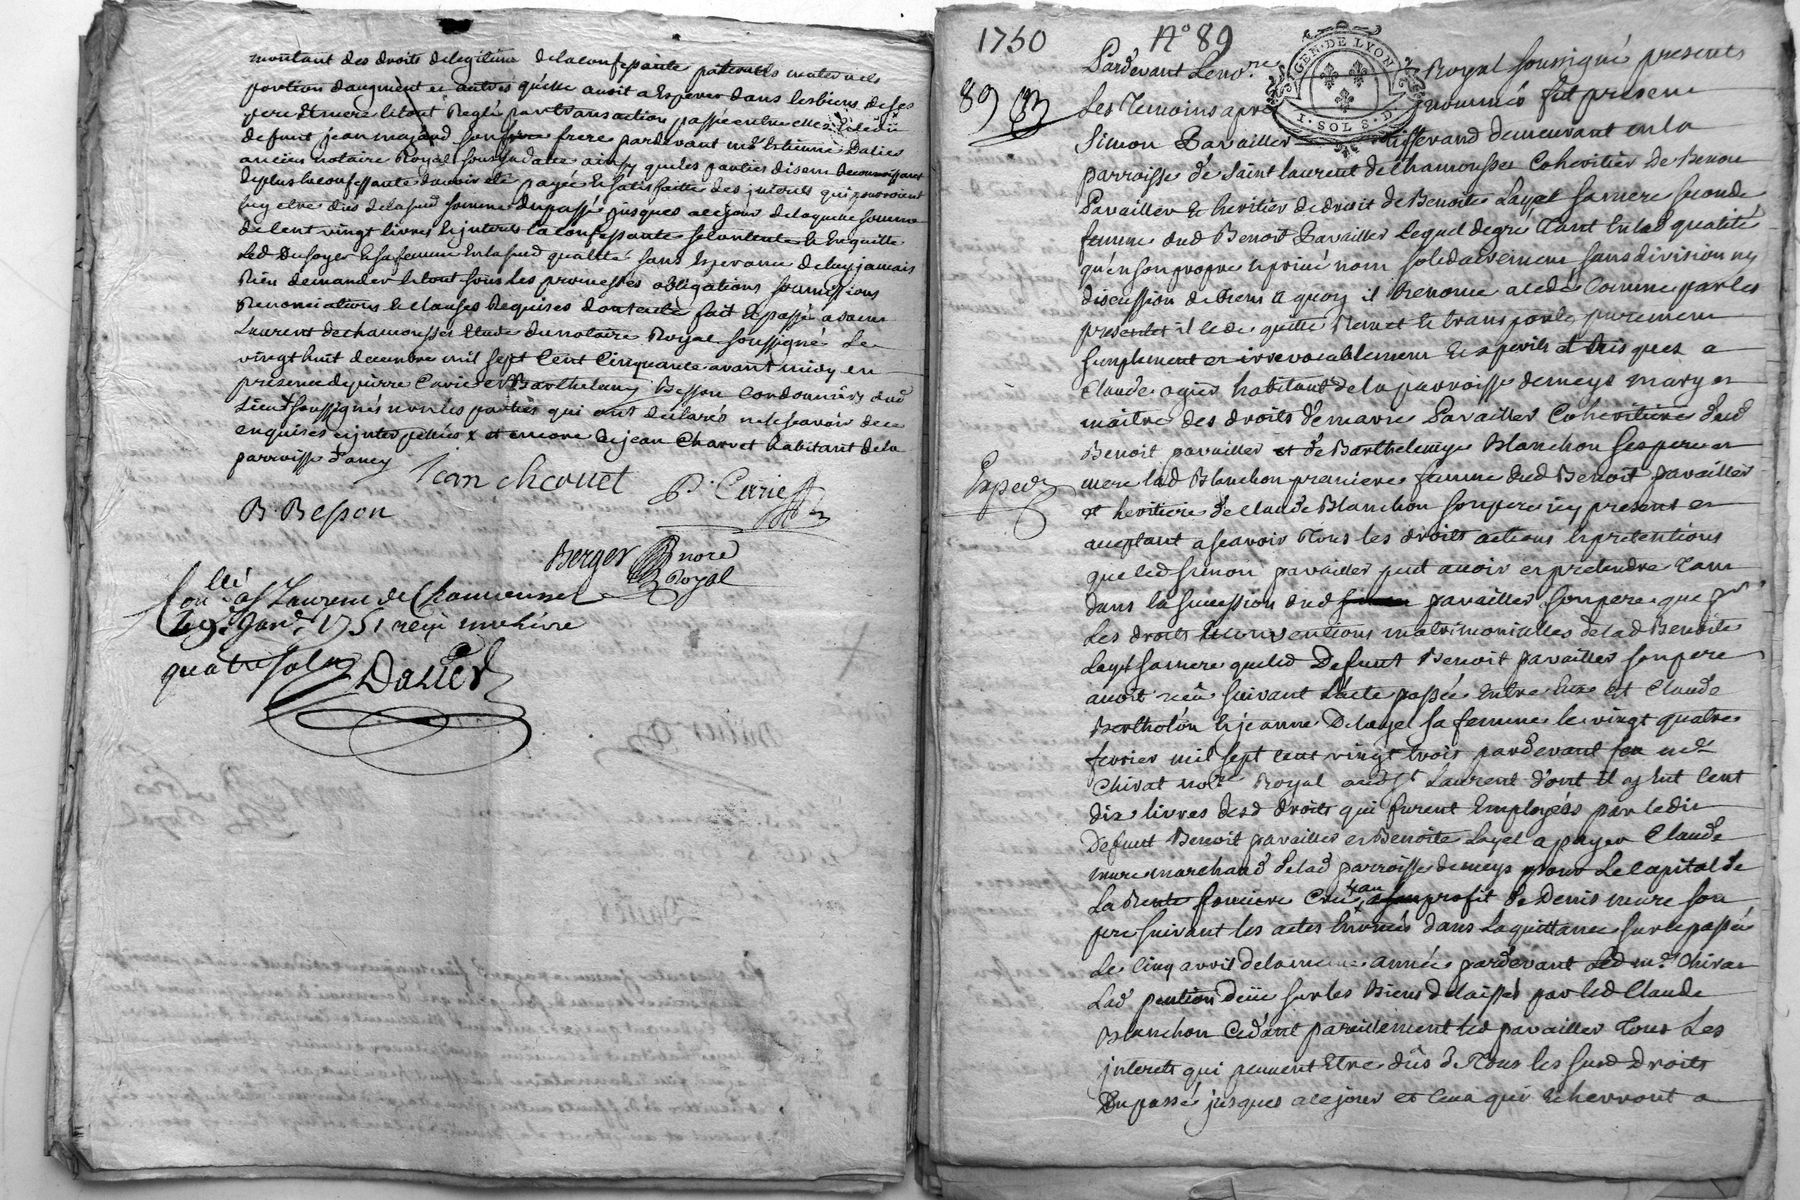 montant des droits de legitime de la confessante paternels maternels
portion daugment et autres quelle avoit a Esperer dans les biens de ses
pere Et mere le tout Reglé par transaction passée entre elle & ledit
defunt jean mazard son frere pardevant me Estienne Dalier
ancien notaire Royal sous sa date ainsy que les parties disent Reconnoissant
de plus la confessante d'avoir été payée Et satisfaitte des interets qui pouvoient
luy etre dus de la sud somme du passé jusques a ce jour de laquelle somme
de Cent vingt livres & interets la confessante se contente & En quitte
Led Dusoyer Et sa femme En lad qualité sans Esperance de luy jamais
Rien demander le tout sous les promesses obligations soumissions
Renonciations & clauses Requises dont acte fait & passé a saint
Laurent de chamousset Etude du notaire Royal soussigné Le
vingt huit decembre mil sept Cent Cinquante avant midy en
presence de pierre Curie et Barthelemy Besson Cordonniers dud
Lieu soussignés non les parties qui ont declarés ne scavoir de ce
enquises & interpellées x et encore de jean Charvet habitant de la
parroisse d'aney
Jean charvet P. Curie
B. Besson
Berger nore
Royal
Conllé a St Laurent de Chamousset
Le 9e janv. 1751 reçu une livre
quatre sols
Dalier
1750 No 89
GEN. DE LYON
I. SOL 8. D.
89
Pardevant Le no.re Royal soussigné presents
Les Temoins apres nommés fut present
Simon Pavailler Tisserand demeurant en la
parroisse de Saint Laurent de Chamousset Coheritier de Benoit
Pavailler & heritier de droit de Benoite Layel sa mere seconde
femme dud Benoit Pavailler Lequel de gré Tant En lad qualité
qu'en son propre & privé nom solidairement sans division ny
discussion de biens a quoy il Renonce a cedé Comme par les
presentes il cede quitte Remet & transporte purement
simplement et irrevocablement Et a perils et Risques a
Claude ogier habitant de la parroisse de meys mary et
maitre des droits de marie Pavailler Coheritiere dud
Benoit pavailler et de Barthelemye Blanchon ses pere et
Exped
mere lad Blanchon premiere femme dud Benoit pavailler
et heritiere de claude Blanchon son pere icy present et
acceptant a scavoir Tous les droits actions & pretentions
que led simon pavailler peut avoir et pretendre Tant
dans la succession dud pavailler son pere que pr
Les droits & conventions matrimonialles de lad Benoite
Layel sa mere que led Defunt Benoit pavailler son pere
avoit reçu suivant l'acte passé Entre Eux Et Claude
Bertholon & jeanne Delayel sa femme le vingt quatre
fevrier mil sept cent vingt trois pardevant feu me
Chirat nore Royal aud St Laurent d'ont il y Eut Cent
dix livres desd droits qui furent Employées par ledit
Defunt Benoit pavailler et Benoite Layel a payer Claude
mure marchand de lad parroisse de meys pour Le capital de
La Rente fonciere Créé au profit de Denis mure son
pere suivant les actes Enoncés dans La quittance sur ce passée
Le Cinq avril de la meme année pardevant led me Chirat
Lad pention düe sur les Biens delaissés par led Claude
Blanchon Cedant pareillement led pavailler Tous Les
interets qui peuvent Etre dûs de Tous les susd Droits
Du passé jusques a ce jour et Ceux qui Echerront a